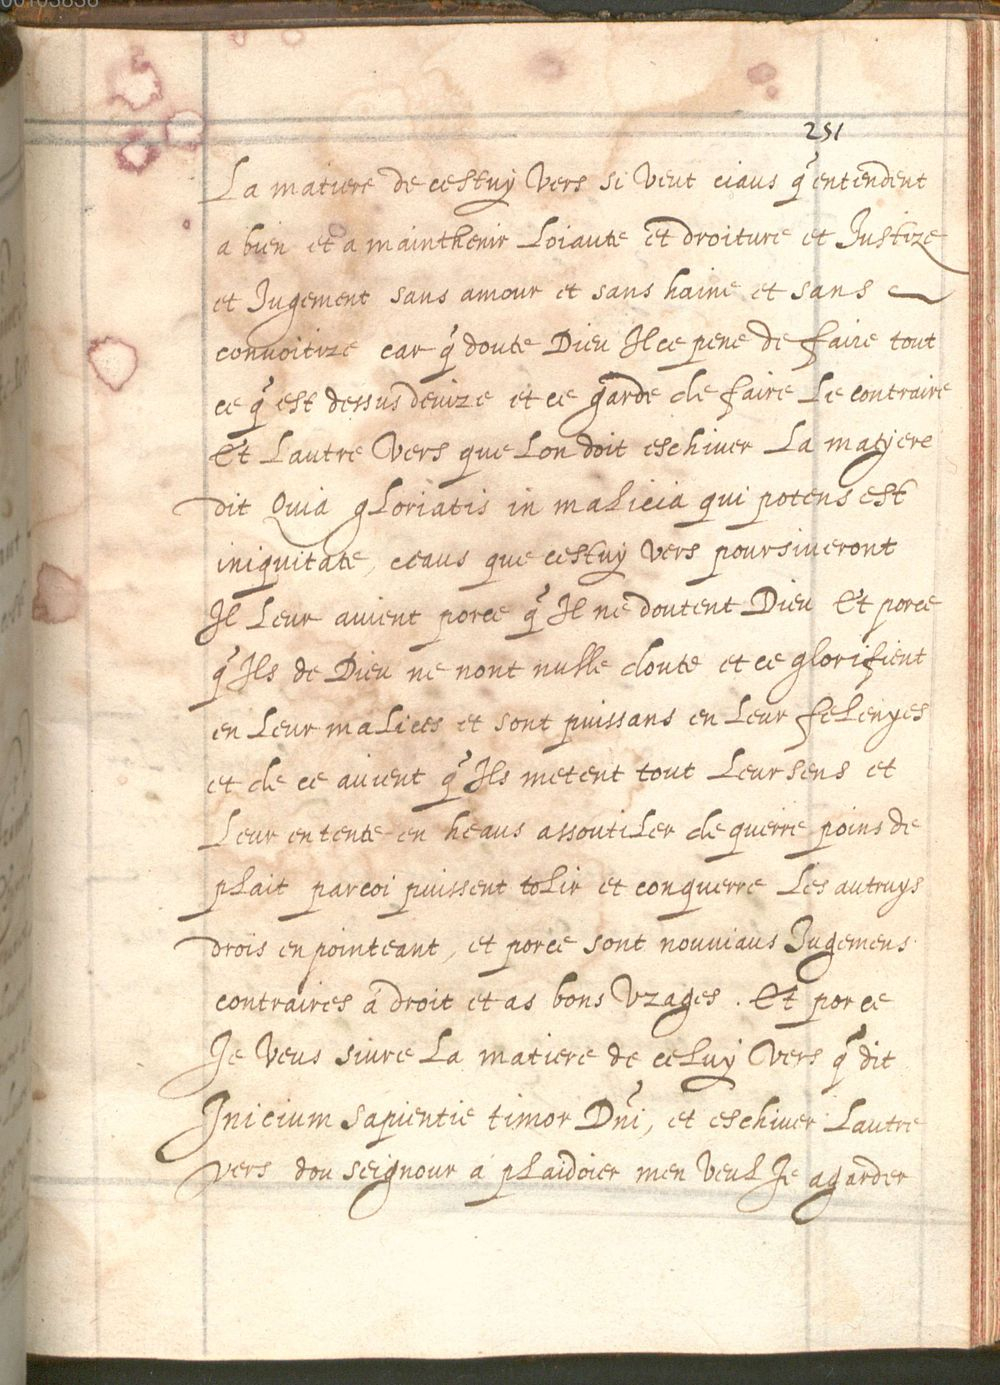 251
La matiere de cestuy Vers si Veut ciaus q̃ entendent
a bien et a mainthenir Loiaute et droiture et Justize
et Jugement sans amour et sans haine et sans
convoitize car q̃ doute Dieu Il ce pene de faire tout
ce q̃ est dessus devize et ce garde de faire Le contraire
Et Lautre Vers que Lon doit eschiver La matyere
dit Quia gloriatis in malicia qui potens est
iniquitate, ceaus que cestuy Vers poursiveront
Il Leur avient porce q̃ Il ne doutent Dieu Et porce
q̃ Ils de Dieu ne nont nulle doute et ce glorifient
en Leur malices et sont puissans en Leur felenyes
et de ce avient q̃ Ils metent tout Leur sens et
Leur entente en heaus assoutiler de querre poins de
plait parcoi puissent tolir et conquerre Les autruys
drois en pointeant, et porce sont nouviaus Jugemens
contraires a droit et as bons Vzages. Et por ce
Je Veus sivre La matiere de celuy Vers q̃ dit
Inicium sapientie timor Dñi, et eschiver Lautre
vers dou seignour a plaidoier men Veul Je agarder